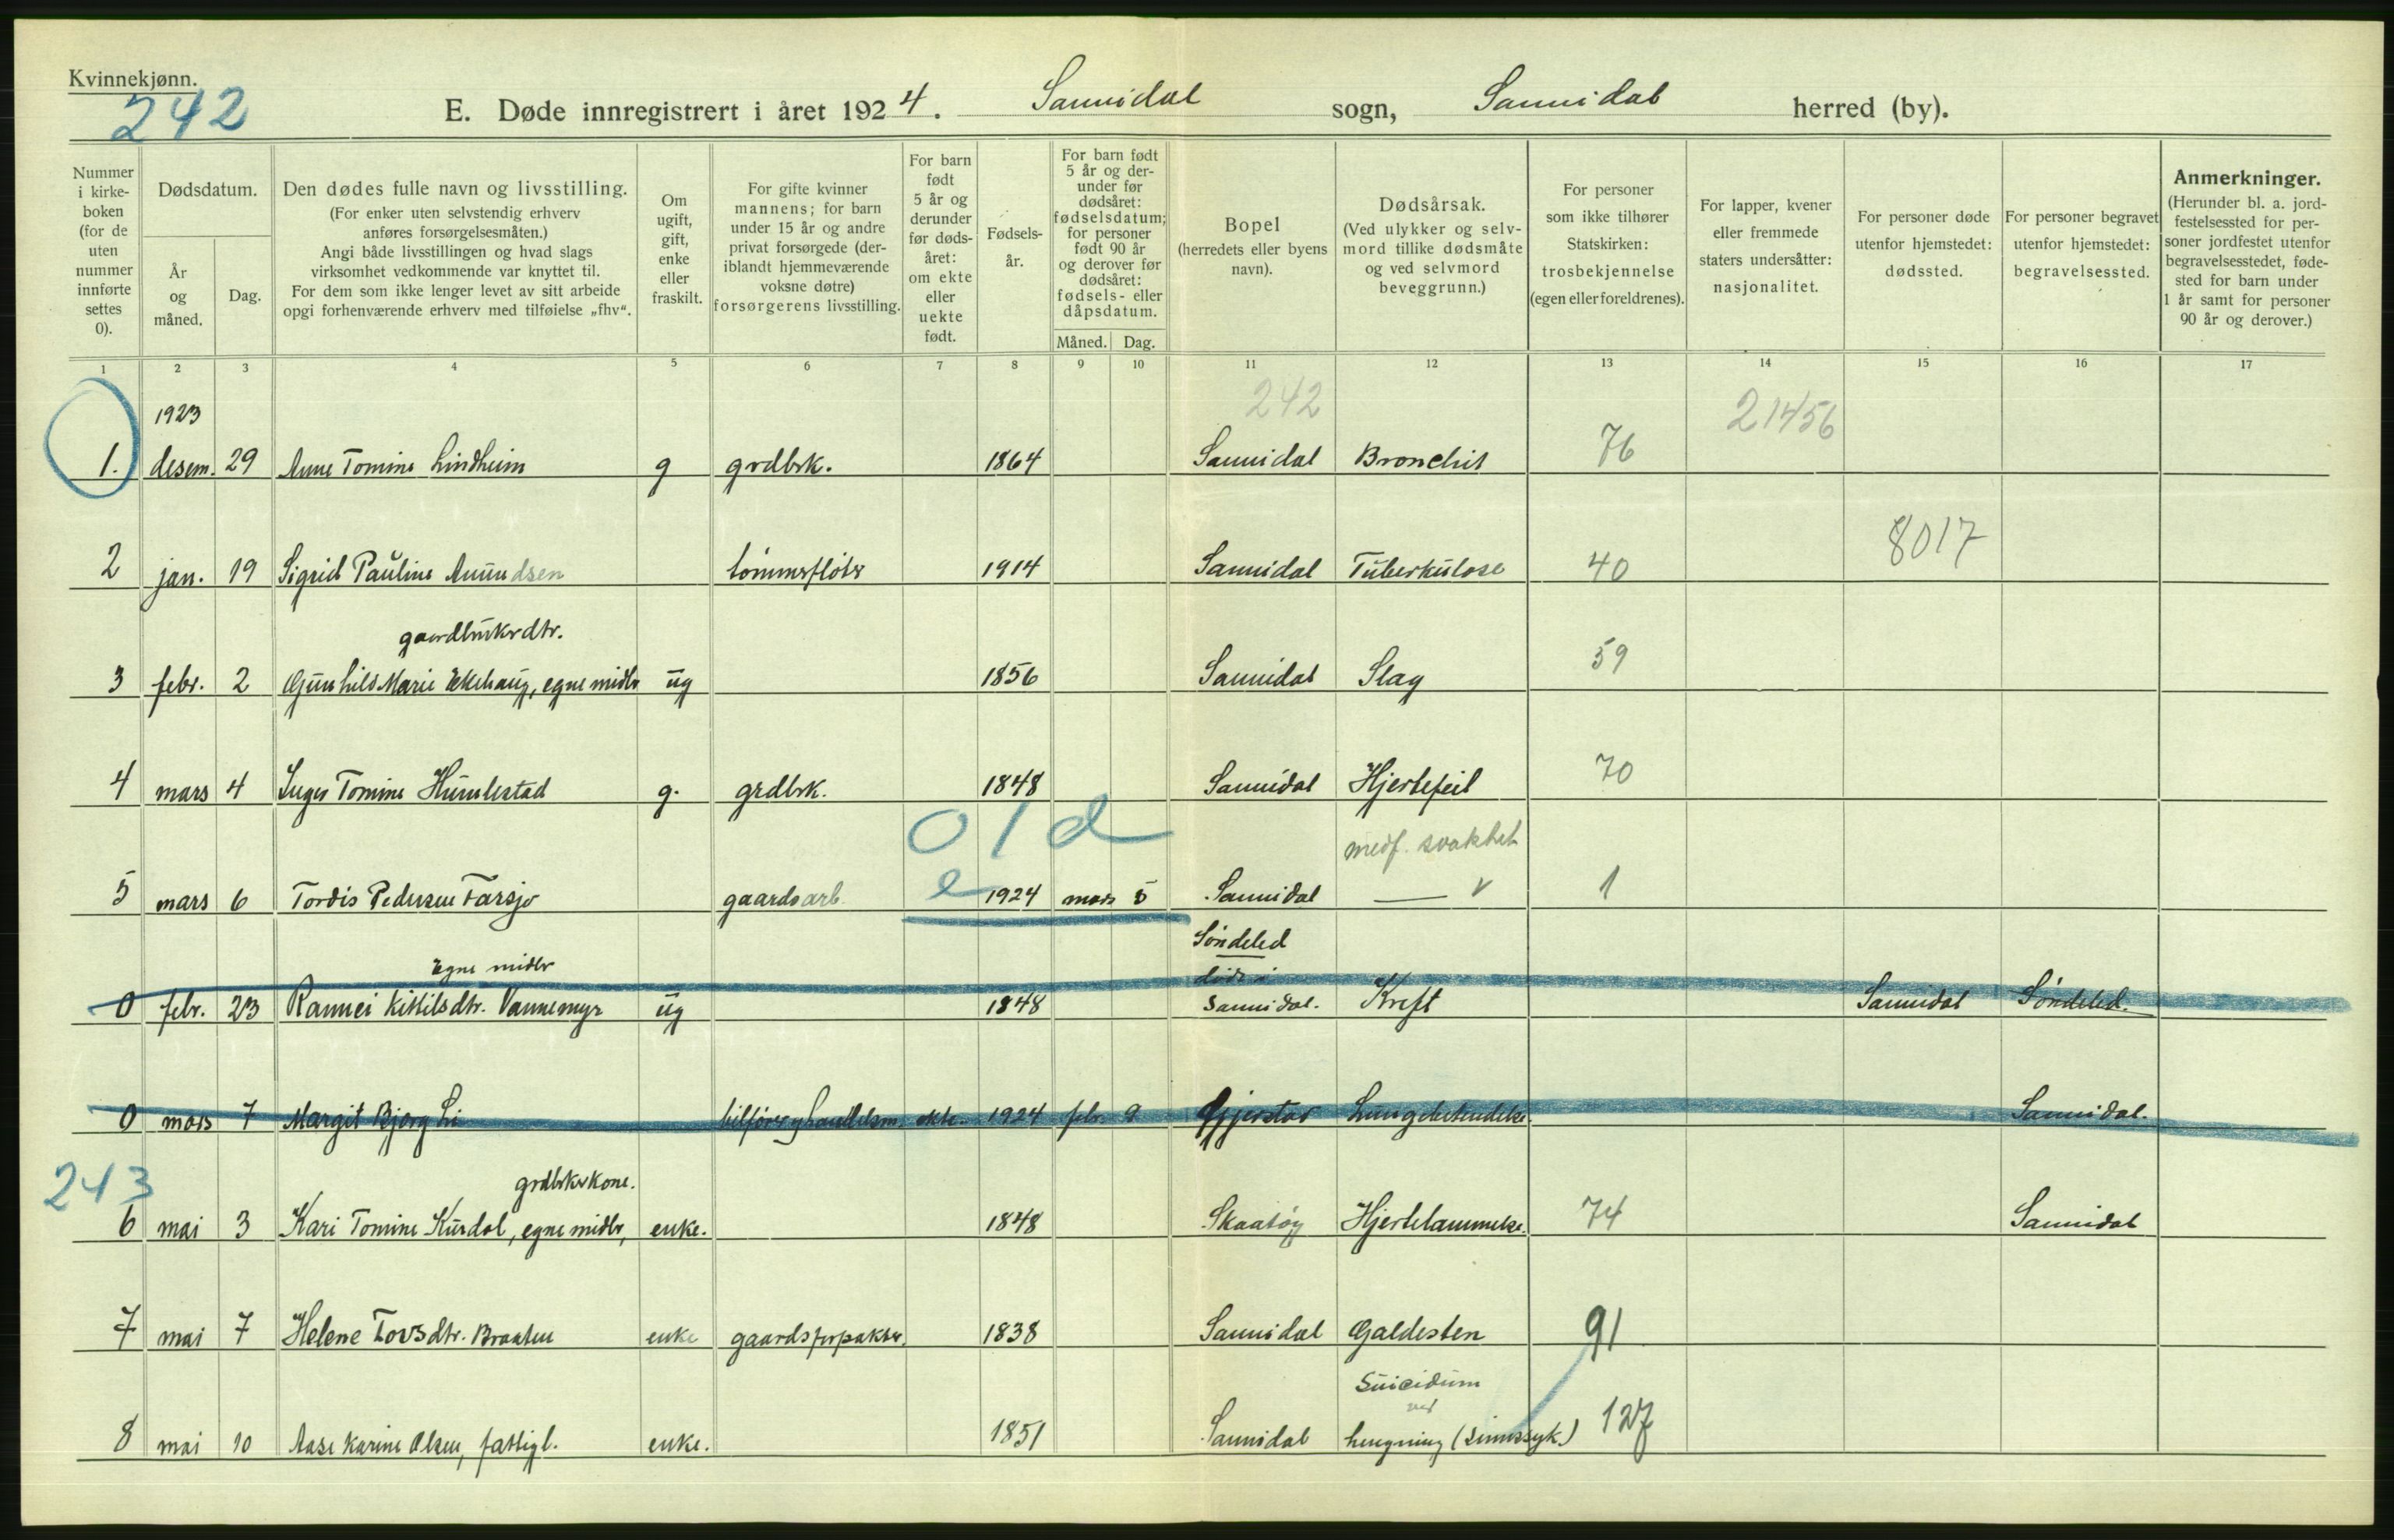 Kvinnekjønn.
242
E. Døde innregistrert i året 1924. Sannidal sogn, Sannidal herred (by).
Nummer i kirke-boken (for de uten nummer innførte settes 0).
Dødsdatum.
År og måned.
Dag.
Den dødes fulle navn og livsstilling.
(For enker uten selvstendig erhverv
anføres forsørgelsesmåten.)
Angi både livsstillingen og hvad slags
virksomhet vedkommende var knyttet til.
For dem som ikke lenger levet av sitt arbeide
opgi forhenværende erhverv med tilføielse „fhv“.
Om ugift, gift, enke eller fraskilt.
For gifte kvinner
mannens; for barn
under 15 år og andre
privat forsørgede (der-
iblandt hjemmeværende
voksne døtre)
forsørgerens livsstilling.
For barn født 5 år og derunder før døds-året: om ekte eller uekte født.
Fødsels-år.
For barn født 5 år og der-under før dødsåret: fødselsdatum; for personer født 90 år og derover før dødsåret: fødsels- eller dåpsdatum.
Måned. Dag.
Bopel
(herredets eller byens
navn).
Dødsårsak.
(Ved ulykker og selv-
mord tillike dødsmåte
og ved selvmord
beveggrunn.)
For personer
som ikke tilhører
Statskirken:
trosbekjennelse
(egen eller foreldrenes).
For lapper, kvener
eller fremmede
staters undersåtter:
nasjonalitet.
For personer døde
utenfor hjemstedet:
dødssted.
For personer begravet
utenfor hjemstedet:
begravelsessted.
Anmerkninger.
(Herunder bl. a. jord-
festelsessted for per-
soner jordfestet utenfor
begravelsesstedet, føde-
sted for barn under
1 år samt for personer
90 år og derover.)
1 2 3 4 5 6 7 8 9 10 11 12 13 14 15 16 17
1923 242 21456
1. desem. 29 Anne Tomine Lindheim g grdbrk. 1864 Sannidal Bronchit 76
8017
2 jan. 19 Sigrid Pauline Amundsen tømmerfløter 1914 Sannidal Tuberkulose 40
gaardbrukerdtr.
3 febr. 2 Gunhild Marie Ekehaug, egne midler ug 1856 Sannidal Slag 59
4 mars 4 Inger Tomine Humlestad g. grdbrk. 1848 Sannidal Hjertefeil 70
0 1 d medf. svakhet
5 mars 6 Tordis Pedersen Farsjø gaardsarb. e 1924 mars 5 Sannidal — v 1
Søndeled
Egne midler døde i
0 febr. 23 Rannei Kittilsdtr. Vannemyr ug 1848 Sannidal. Kreft Sannidal Søndeled.
0 mars 7 Margit Bjørg Li bilfører handelsm. ekte. 1924 febr. 9 Gjerstad Lungebetendelse. Sannidal.
243
grdbrkerkone.
6 mai 3 Kari Tomine Kurdøl, egne midler, enke. 1848 Skaatøy Hjertelammelse. 74 Sannidal
7 mai 7 Helene Tovsdtr. Braaten enke gaardsforpakter. 1838 Sannidal Galdesten 91
Suicidium
ved
8 mai 10 Aase Karine Olsen, fattigl. enke. 1851 Sannidal hengning (sinnssyk) 127